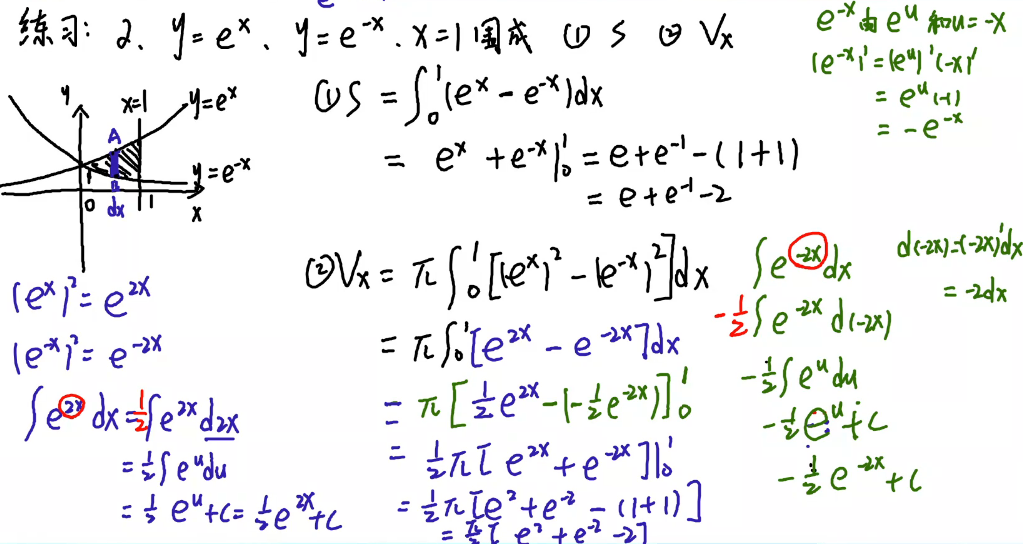 练习: 2、 y=eˣ、 y=e⁻ˣ、x=1围成 ① S ② Vₓ
e⁻ˣ由eᵘ和u=-x
(e⁻ˣ)'=(eᵘ)'(-x)'
= eᵘ(-1)
= -e⁻ˣ
y x=1 y=eˣ
A
1 B y=e⁻ˣ
0 dx 1 x
① S = ∫₀¹(eˣ - e⁻ˣ)dx
= eˣ + e⁻ˣ|₀¹ = e+e⁻¹-(1+1)
= e+e⁻¹-2
② Vₓ = π∫₀¹[(eˣ)² - (e⁻ˣ)²]dx
= π∫₀¹[e²ˣ - e⁻²ˣ]dx
= π[½e²ˣ-(-½e⁻²ˣ)]₀¹
= ½π[e²ˣ+e⁻²ˣ]|₀¹
= ½π[e²+e⁻² - (1+1)]
= π/2[e²+e⁻²-2]
(eˣ)²= e²ˣ
(e⁻ˣ)²= e⁻²ˣ
∫e²ˣ dx=½∫e²ˣ d2x
= ½∫eᵘdu
= ½ eᵘ+c= ½e²ˣ+c
∫e⁻²ˣdx
-½∫e⁻²ˣ d(-2x)
-½∫eᵘdu
-½eᵘ+c
-½e⁻²ˣ+c
d(-2x)=(-2x)'dx
= -2dx